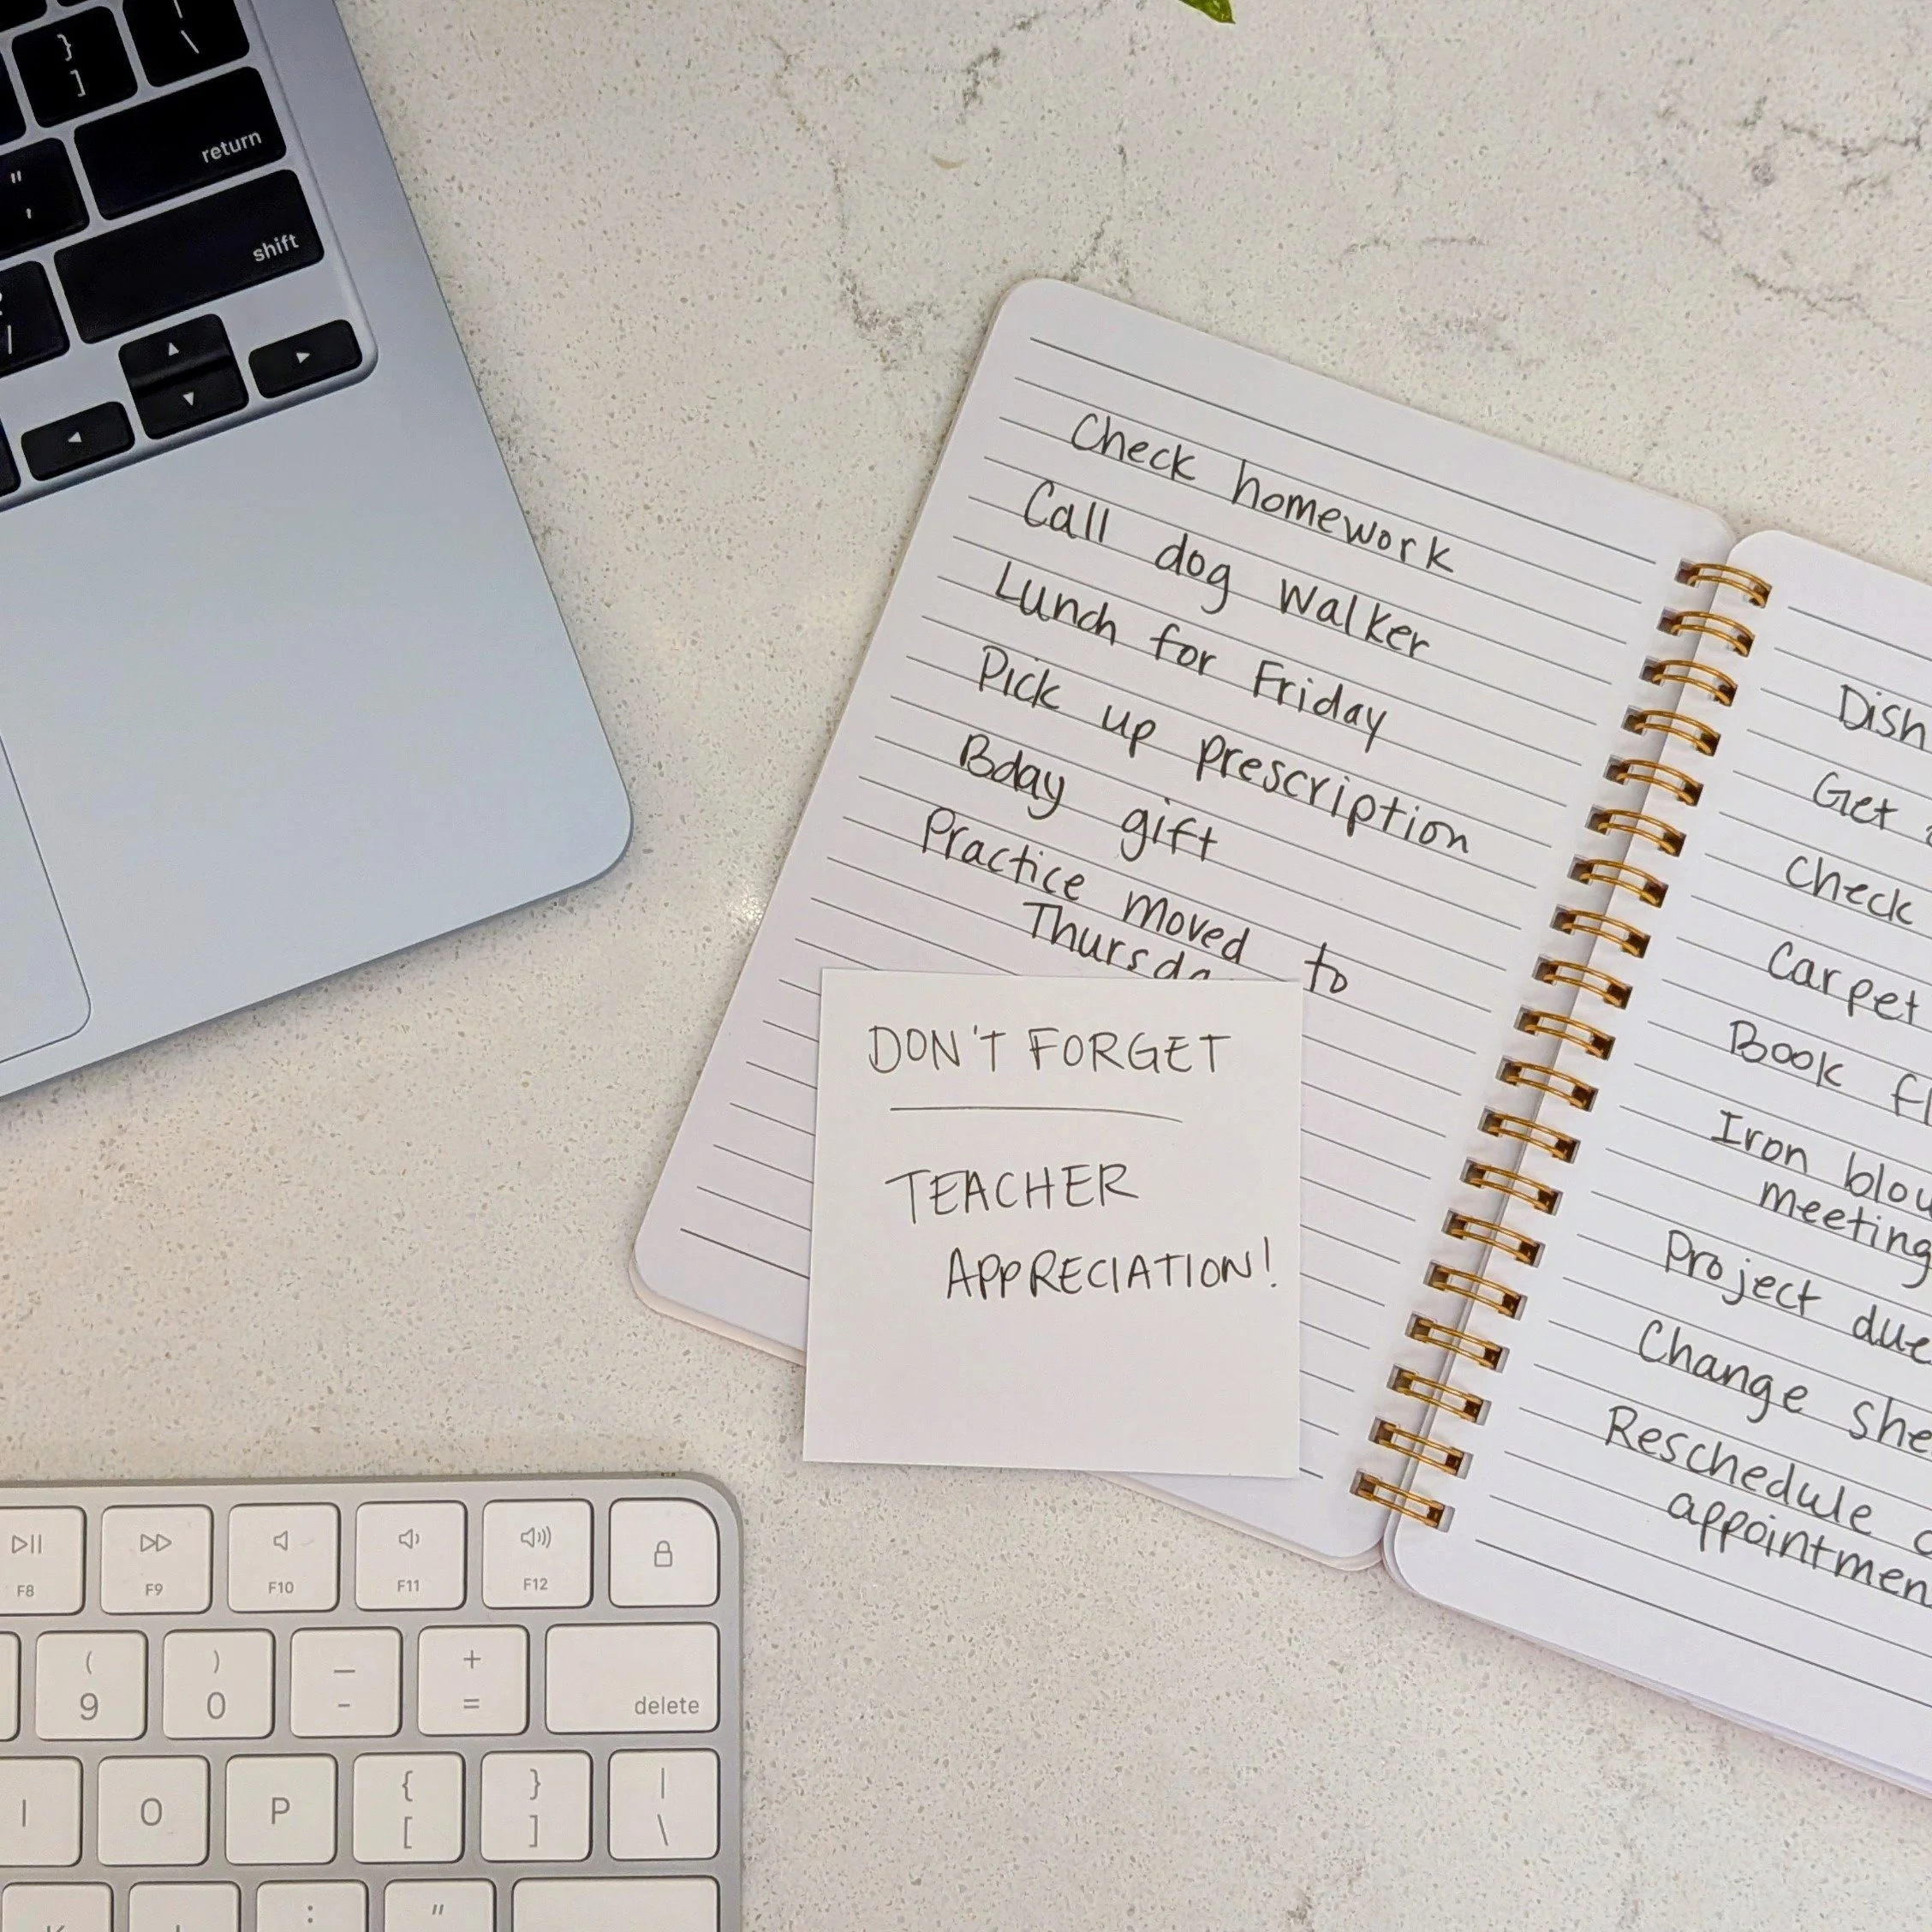 }
]
|
\
return
"
'
shift
/
Check homework
Call dog walker
Lunch for Friday
Pick up prescription
Bday gift
Practice moved to
DON'T FORGET
TEACHER
APPRECIATION!
Dish
Get
Check
Carpet
Book
Iron
meeting
Project due
Change
Reschedule
F8
F9
F10
F11
F12
(
9
)
0
—
-
+
=
delete
I
O
P
{
[
}
]
|
\
:
"